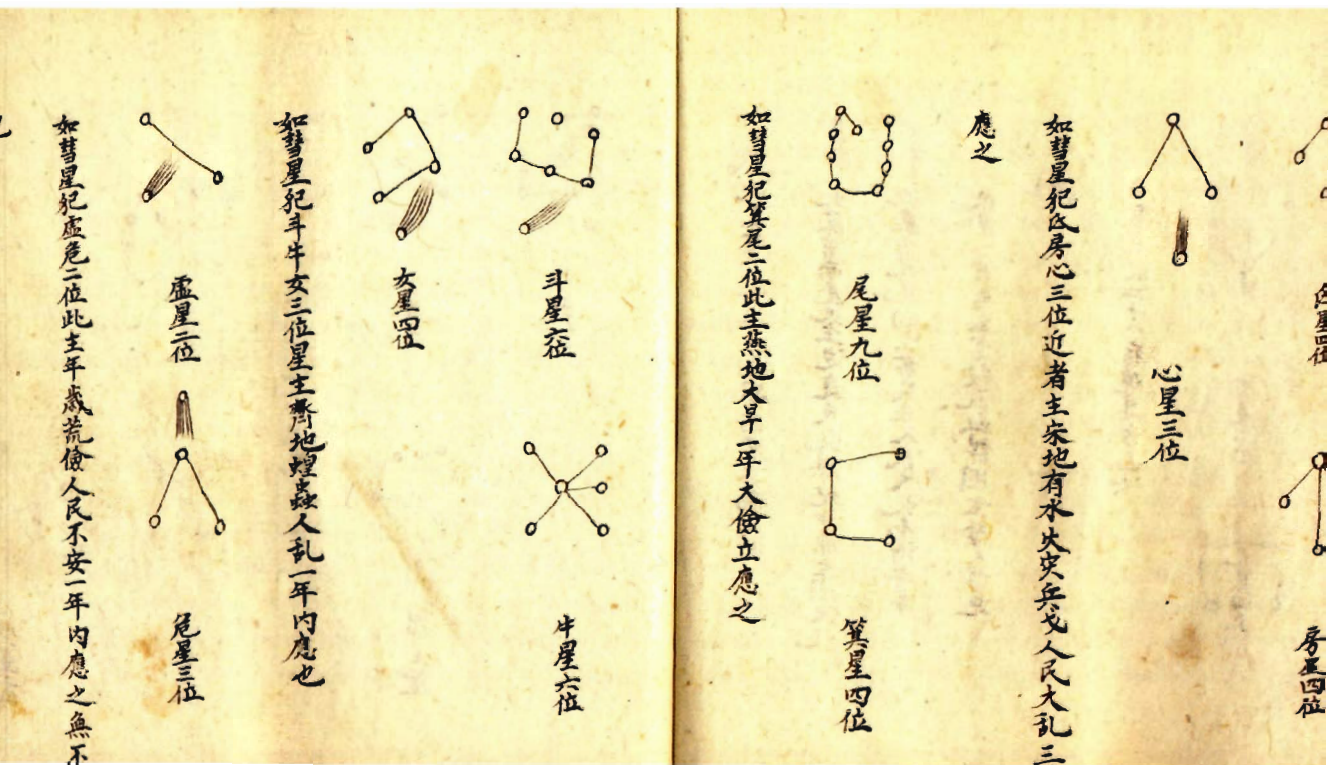 氐星四位
房星四位
心星三位
如彗星犯氐房心三位近者主宋地有水火灾兵戈人民大乱三
應之
尾星九位
箕星四位
如彗星犯箕尾二位此主燕地大旱一年大儉立應之
斗星六位
牛星六位
女星四位
如彗星犯斗牛女三位星主齊地蝗蟲人乱一年内應也
虚星二位
危星三位
如彗星犯虚危二位此主年歲荒儉人民不安一年内應之無不